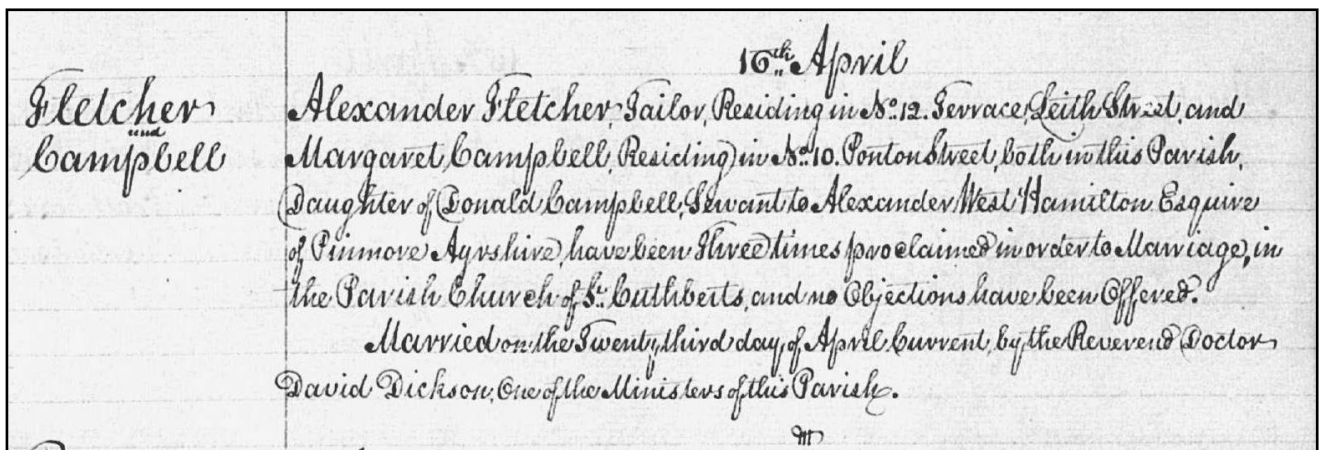 16th April
Fletcher
and
Campbell
Alexander Fletcher, Tailor, Residing in No. 12. Terrace, Leith Street, and
Margaret Campbell, Residing in No. 10. Ponton Street, both in this Parish,
Daughter of Donald Campbell, Servant to Alexander West Hamilton Esquire
of Pinmore Ayrshire, have been Three times proclaimed in order to Marriage, in
the Parish Church of St. Cuthberts, and no Objections have been Offered.
Married on the Twenty third day, of April Current, by the Reverend Doctor
David Dickson, One of the Ministers of this Parish.